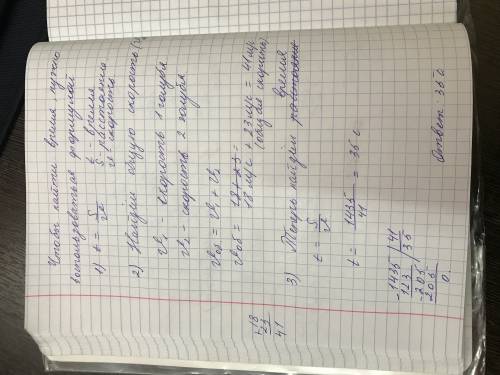 Чтобы найти время, нужно
воспользоваться формулой
1) t = S/v
t - время
S - расстояние
v - скорость
2) Найдём общую скорость
v₁ - скорость 1 голубя
v₂ - скорость 2 голубя
vоб = v₁ + v₂
vоб = 18 м/с + 23 м/с = 41 м/с
(общая скорость)
3) Теперь найдём время
t = S/v
t = 1435/41 = 35 с
-1435 | 41
123 | 35
-205
205
0.
Ответ: 35 с
+18
23
41